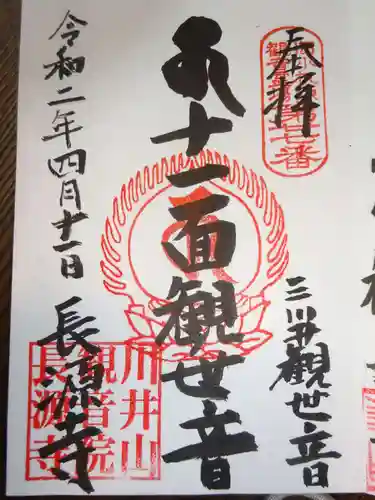 奉拝
十一面観世音
三川井観世音
令和二年四月十一日
長源寺
川井山
観音院
長源寺